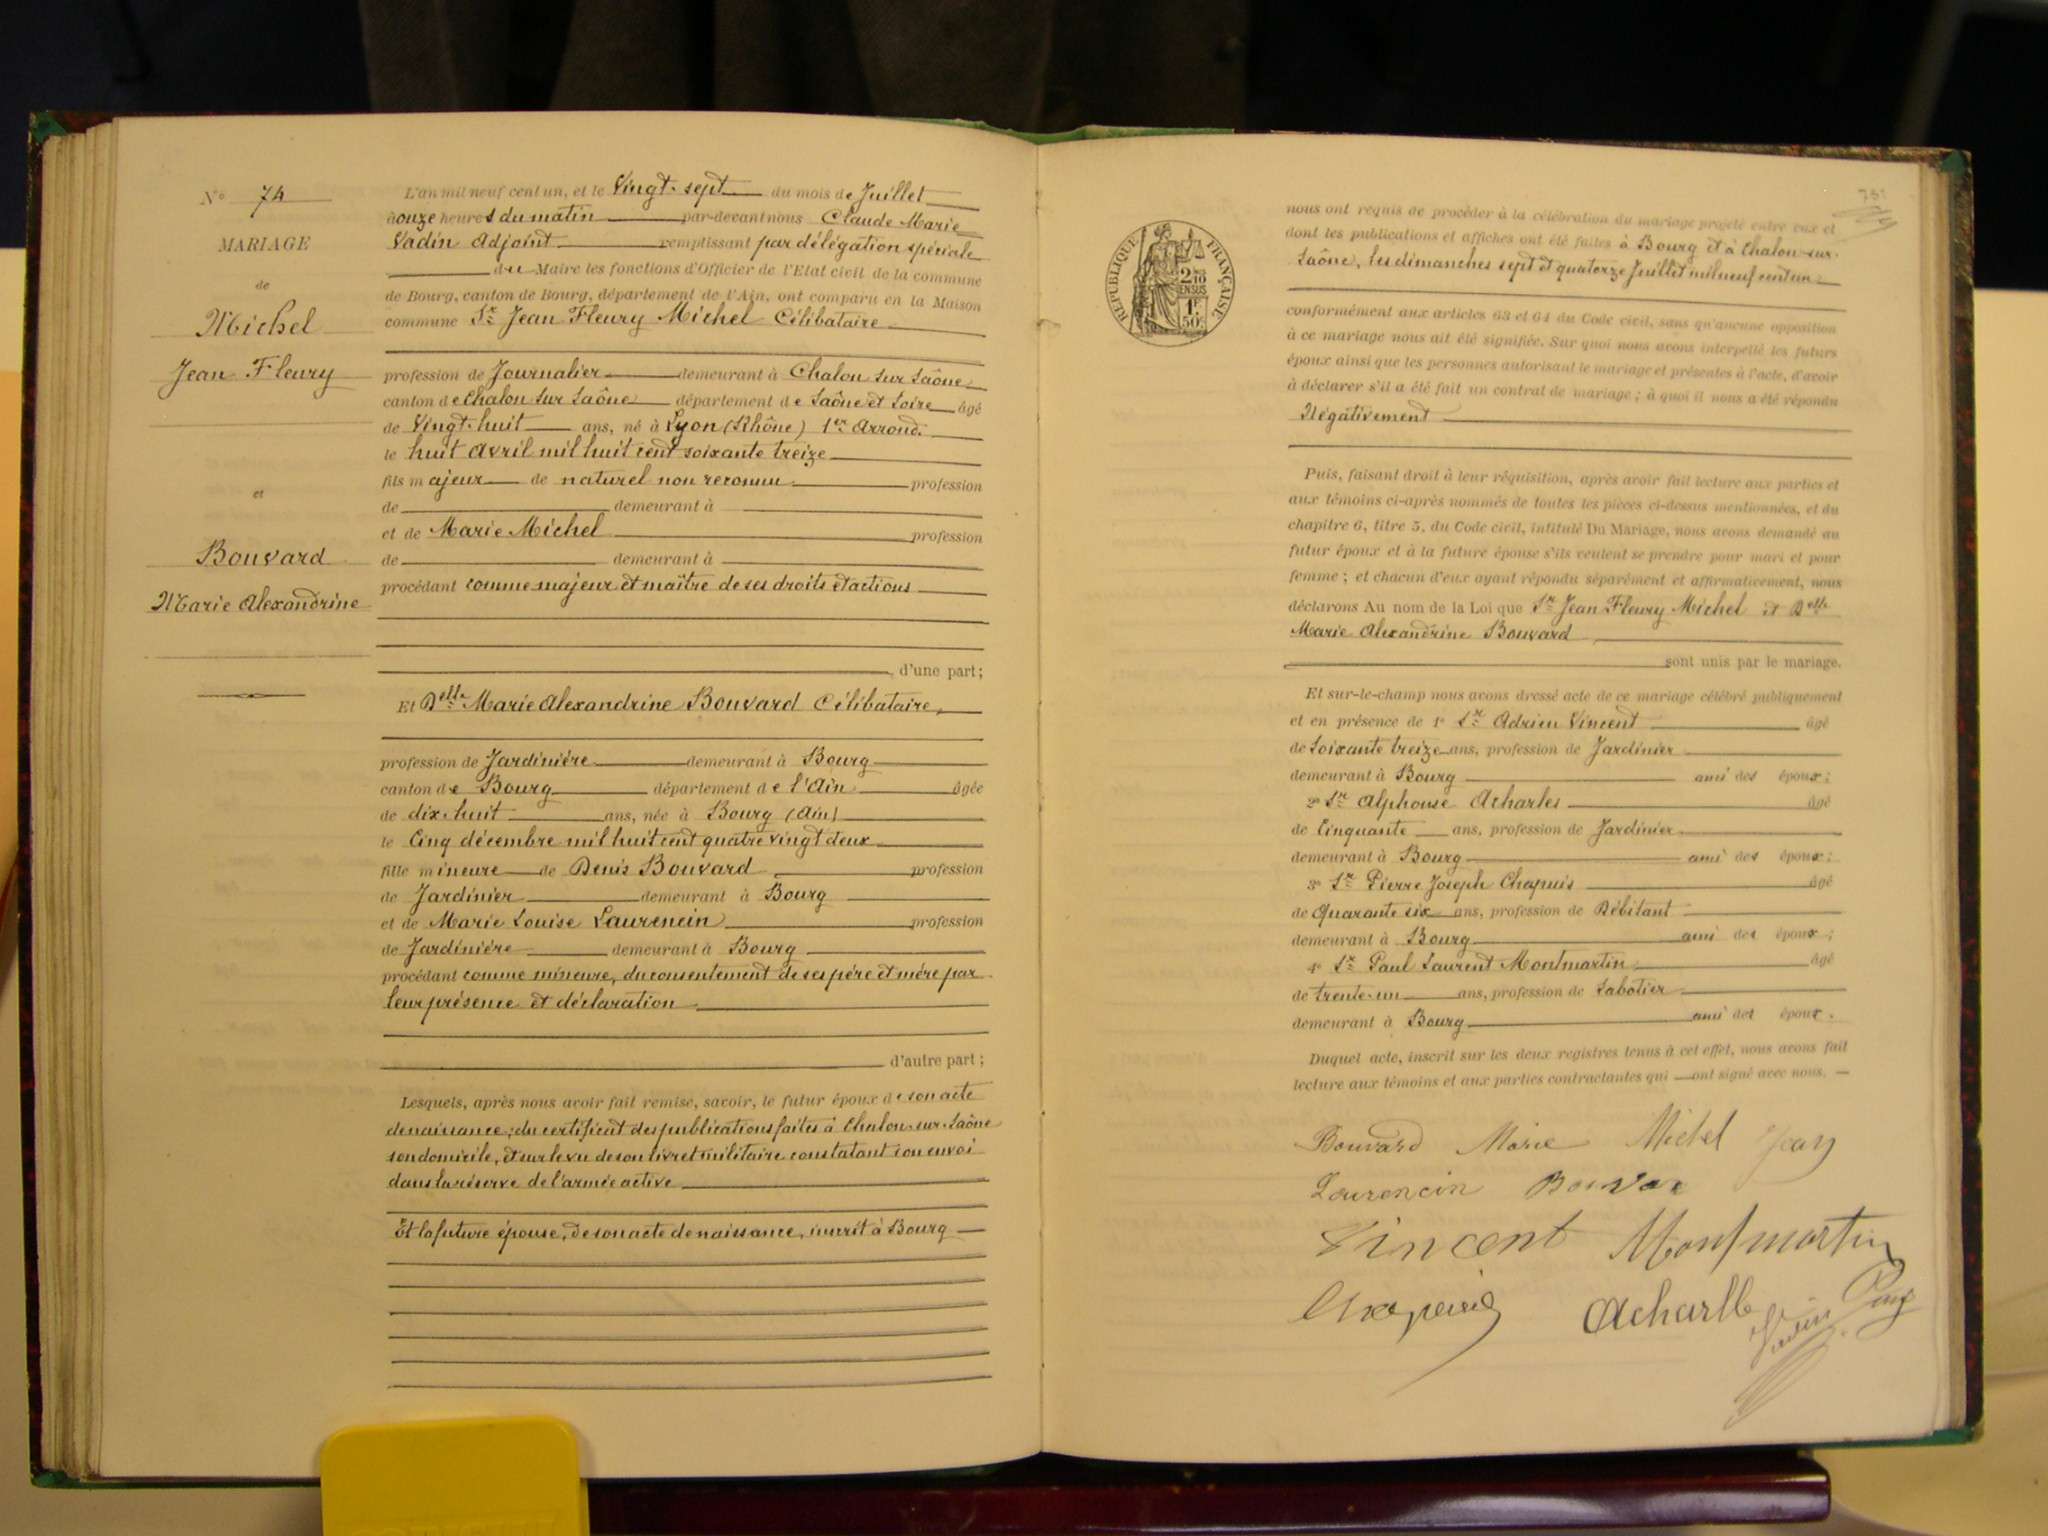 N° 74
MARIAGE
de
Michel
Jean Fleury
et
Bouvard
Marie Alexandrine
L'an mil neuf cent un, et le Vingt-sept du mois de Juillet
à onze heures du matin par-devant nous Claude Marie
Vadin Adjoint remplissant par délégation spéciale
du Maire les fonctions d'Officier de l'Etat civil de la commune
de Bourg, canton de Bourg, département de l'Ain, ont comparu en la Maison
commune Sr Jean Fleury Michel Célibataire
profession de Journalier demeurant à Chalon sur Saône
canton de Chalon sur Saône département de Saône et Loire âgé
de Vingt-huit ans, né à Lyon (Rhône) 1er Arrond.
le huit Avril mil huit cent soixante treize
fils majeur de naturel non reconnu profession
de demeurant à
et de Marie Michel profession
de demeurant à
procédant comme majeur et maître de ses droits et actions
d'une part;
Et Delle Marie Alexandrine Bouvard Célibataire,
profession de Jardinière demeurant à Bourg
canton de Bourg département de l'Ain âgée
de dix-huit ans, née à Bourg (Ain)
le Cinq décembre mil huit cent quatre vingt deux
fille mineure de Denis Bouvard profession
de Jardinier demeurant à Bourg
et de Marie Louise Laurencin profession
de Jardinière demeurant à Bourg
procédant comme mineure, du consentement de ses père et mère par
leur présence et déclaration
d'autre part;
Lesquels, après nous avoir fait remise, savoir, le futur époux de son acte
de naissance; du certificat des publications faites à Chalon-sur-Saône
son domicile, et sur le vu de son livret militaire constatant son envoi
dans la réserve de l'armée active
Et la future épouse, de son acte de naissance, inscrit à Bourg
RÉPUBLIQUE FRANÇAISE
2/10
EN SUS
1F
50c
nous ont requis de procéder à la célébration du mariage projeté entre eux et
dont les publications et affiches ont été faites à Bourg et à Chalon-sur-
Saône, les dimanches sept et quatorze Juillet mil neuf cent un
conformément aux articles 63 et 64 du Code civil, sans qu'aucune opposition
à ce mariage nous ait été signifiée. Sur quoi nous avons interpellé les futurs
époux ainsi que les personnes autorisant le mariage et présentes à l'acte, d'avoir
à déclarer s'il a été fait un contrat de mariage; à quoi il nous a été répondu
Négativement
Puis, faisant droit à leur réquisition, après avoir fait lecture aux parties et
aux témoins ci-après nommés de toutes les pièces ci-dessus mentionnées, et du
chapitre 6, titre 5, du Code civil, intitulé Du Mariage, nous avons demandé au
futur époux et à la future épouse s'ils veulent se prendre pour mari et pour
femme; et chacun d'eux ayant répondu séparément et affirmativement, nous
déclarons Au nom de la Loi que Sr Jean Fleury Michel et Delle
Marie Alexandrine Bouvard
sont unis par le mariage.
Et sur-le-champ nous avons dressé acte de ce mariage célébré publiquement
et en présence de 1° Sr Adrien Vincent âgé
de Soixante treize ans, profession de Jardinier
demeurant à Bourg ami des époux;
2° Sr Alphonse Acharles âgé
de Cinquante ans, profession de Jardinier
demeurant à Bourg ami des époux;
3° Sr Pierre Joseph Chapuis âgé
de Quarante six ans, profession de Débitant
demeurant à Bourg ami des époux;
4° Sr Paul Laurent Montmartin âgé
de trente-un ans, profession de Sabotier
demeurant à Bourg ami des époux.
Duquel acte, inscrit sur les deux registres tenus à cet effet, nous avons fait
lecture aux témoins et aux parties contractantes qui ont signé avec nous.
Bouvard Marie Michel Jean
Laurencin
Vincent Montmartin
Chapuis Acharlle
Vadin